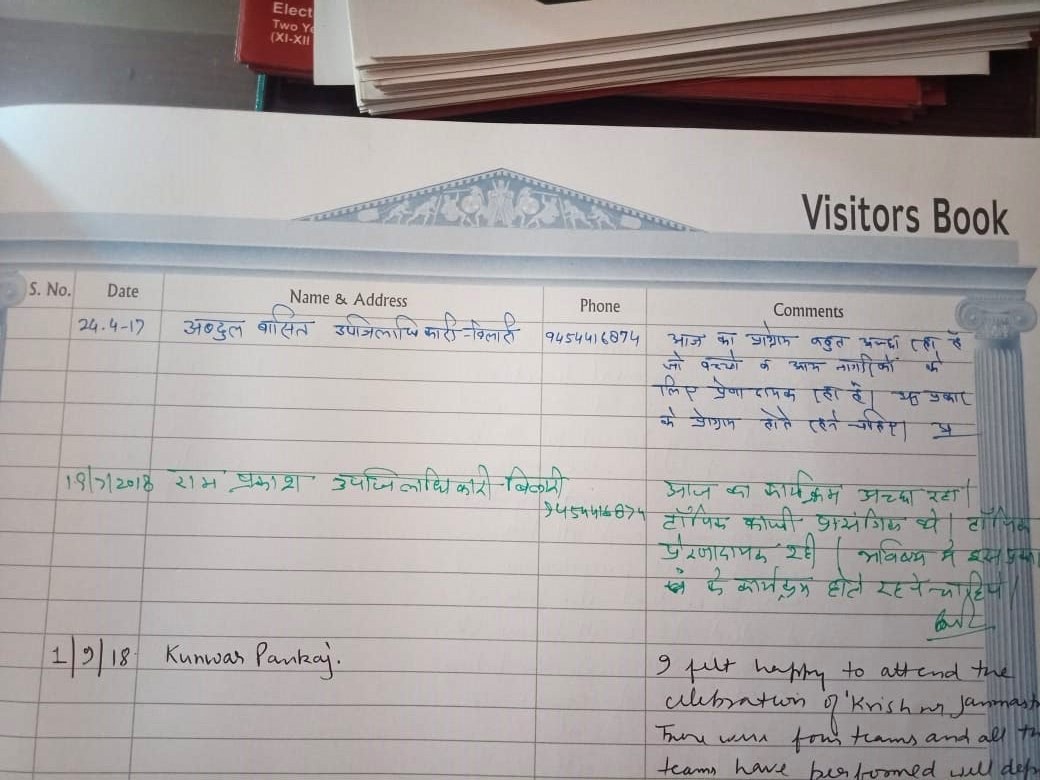 Elect
Two Ye
(XI-XII
Visitors Book
S. No. Date Name & Address Phone Comments
24.4-17 अब्दुल बासित उपजिलाधिकारी-बिलारी 9454416874 आज का प्रोग्राम बहुत अच्छा रहा है
जो बच्चो व आम नागरिकों के
लिए प्रेणादायक रहा है। इस प्रकार
के प्रोग्राम होते रहने चाहिए।
18/7/2018 राम प्रकाश उपजिलाधिकारी-बिलारी आज का कार्यक्रम अच्छा रहा।
9454416874 टॉपिक काफी प्रासंगिक थे। टॉपिक
प्रेरणादायक रही। भविष्य मे इस प्रका
के कार्यक्रम होते रहने चाहिये।
1/9/18 Kunwar Pankaj. I felt happy to attend the
celebration of 'Krishna Janmast
There were four teams and all th
teams have performed well dep